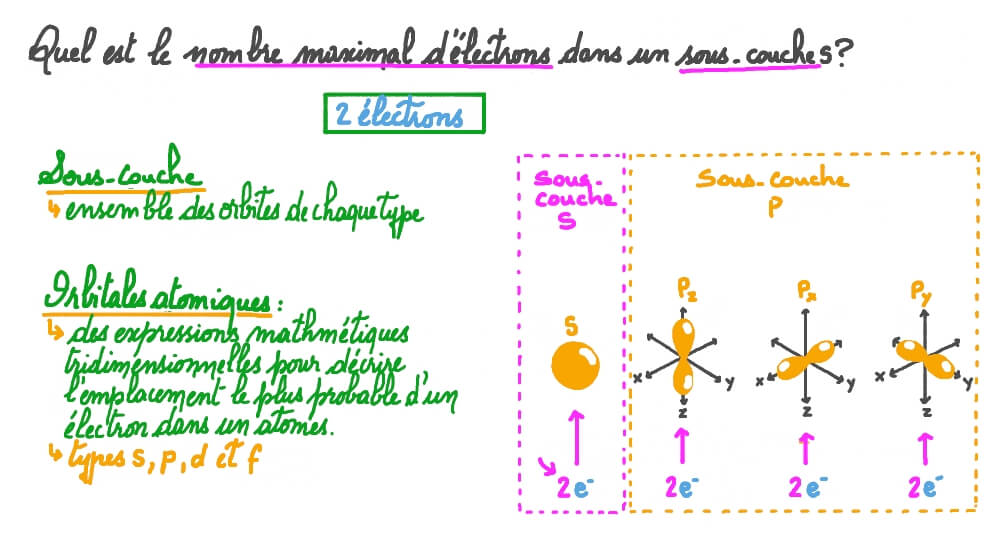 Quel est le nombre maximal d'électrons dans un sous-couche s?
2 électrons
Sous-couche
↳ ensemble des orbites de chaque type
Orbitales atomiques :
↳ des expressions mathmétiques
tridimensionnelles pour décrire
l'emplacement le plus probable d'un
électron dans un atomes.
↳ types s, p, d et f
Sous-
couche
S
S
2e⁻
Sous-couche
P
Pz
x
y
z
2e⁻
Px
x
y
z
2e⁻
Py
x
y
z
2e⁻